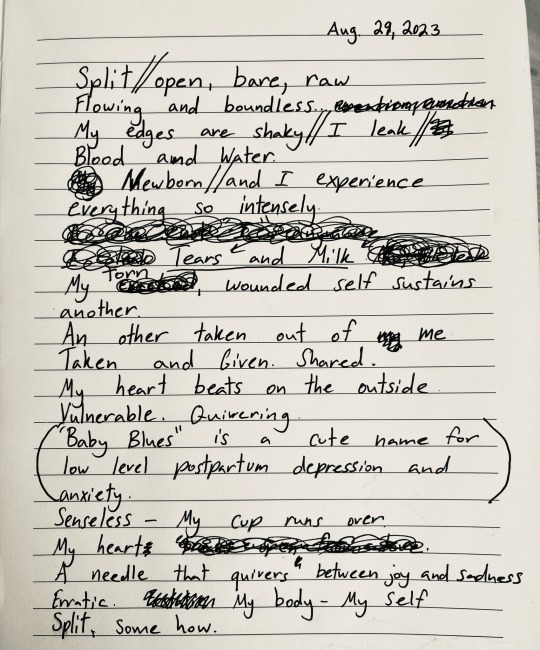 Aug. 29, 2023
Split//open, bare, raw
Flowing and boundless...
My edges are shaky//I leak//
Blood and Water.
Newborn//and I experience
everything so intensely.
Tears and Milk
Torn
My , wounded self sustains
another.
An other taken out of me
Taken and Given. Shared.
My heart beats on the outside.
Vulnerable. Quivering.
("Baby Blues" is a cute name for
low level postpartum depression and
anxiety.)
Senseless – My cup runs over.
My heart:
A needle that quivers between joy and sadness
Erratic. My body – My self
Split, some how.